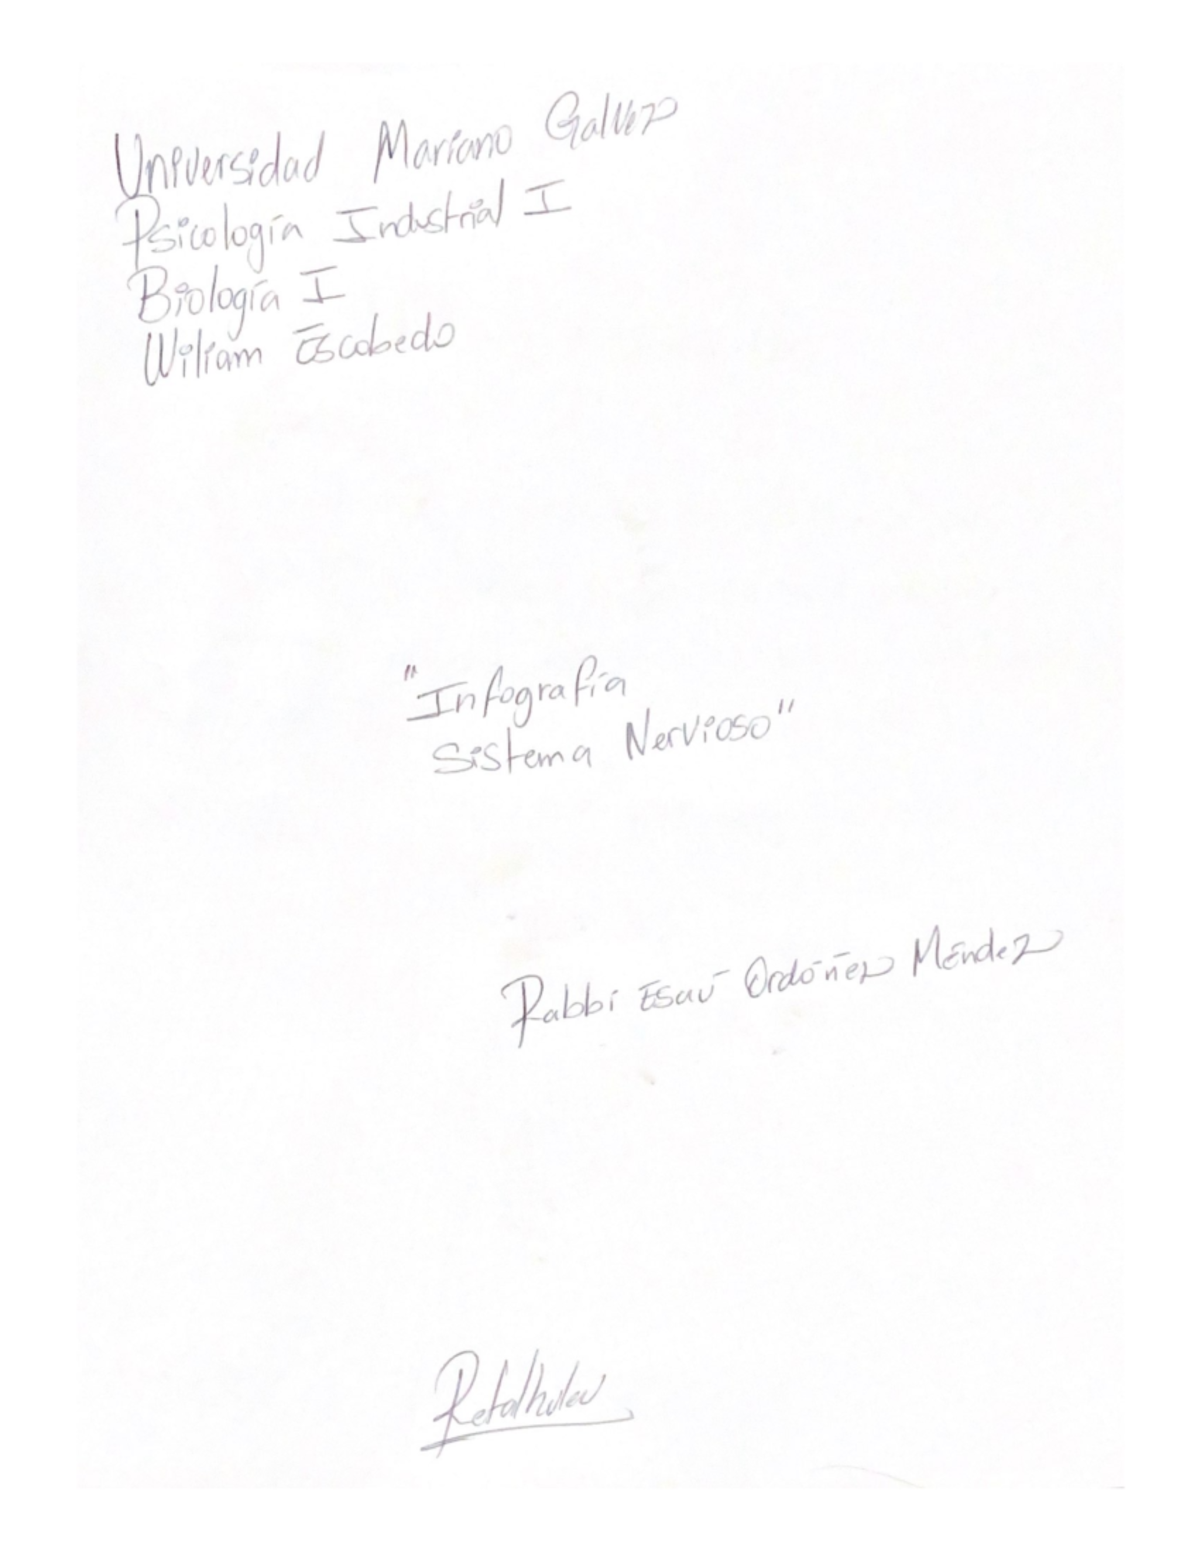 Universidad Mariano Galvez
Psicología Industrial I
Biología I
Wiliam Escobedo
"Infografía
Sistema Nervioso"
Rabbí Esaú Ordóñez Méndez
Retalhuleu